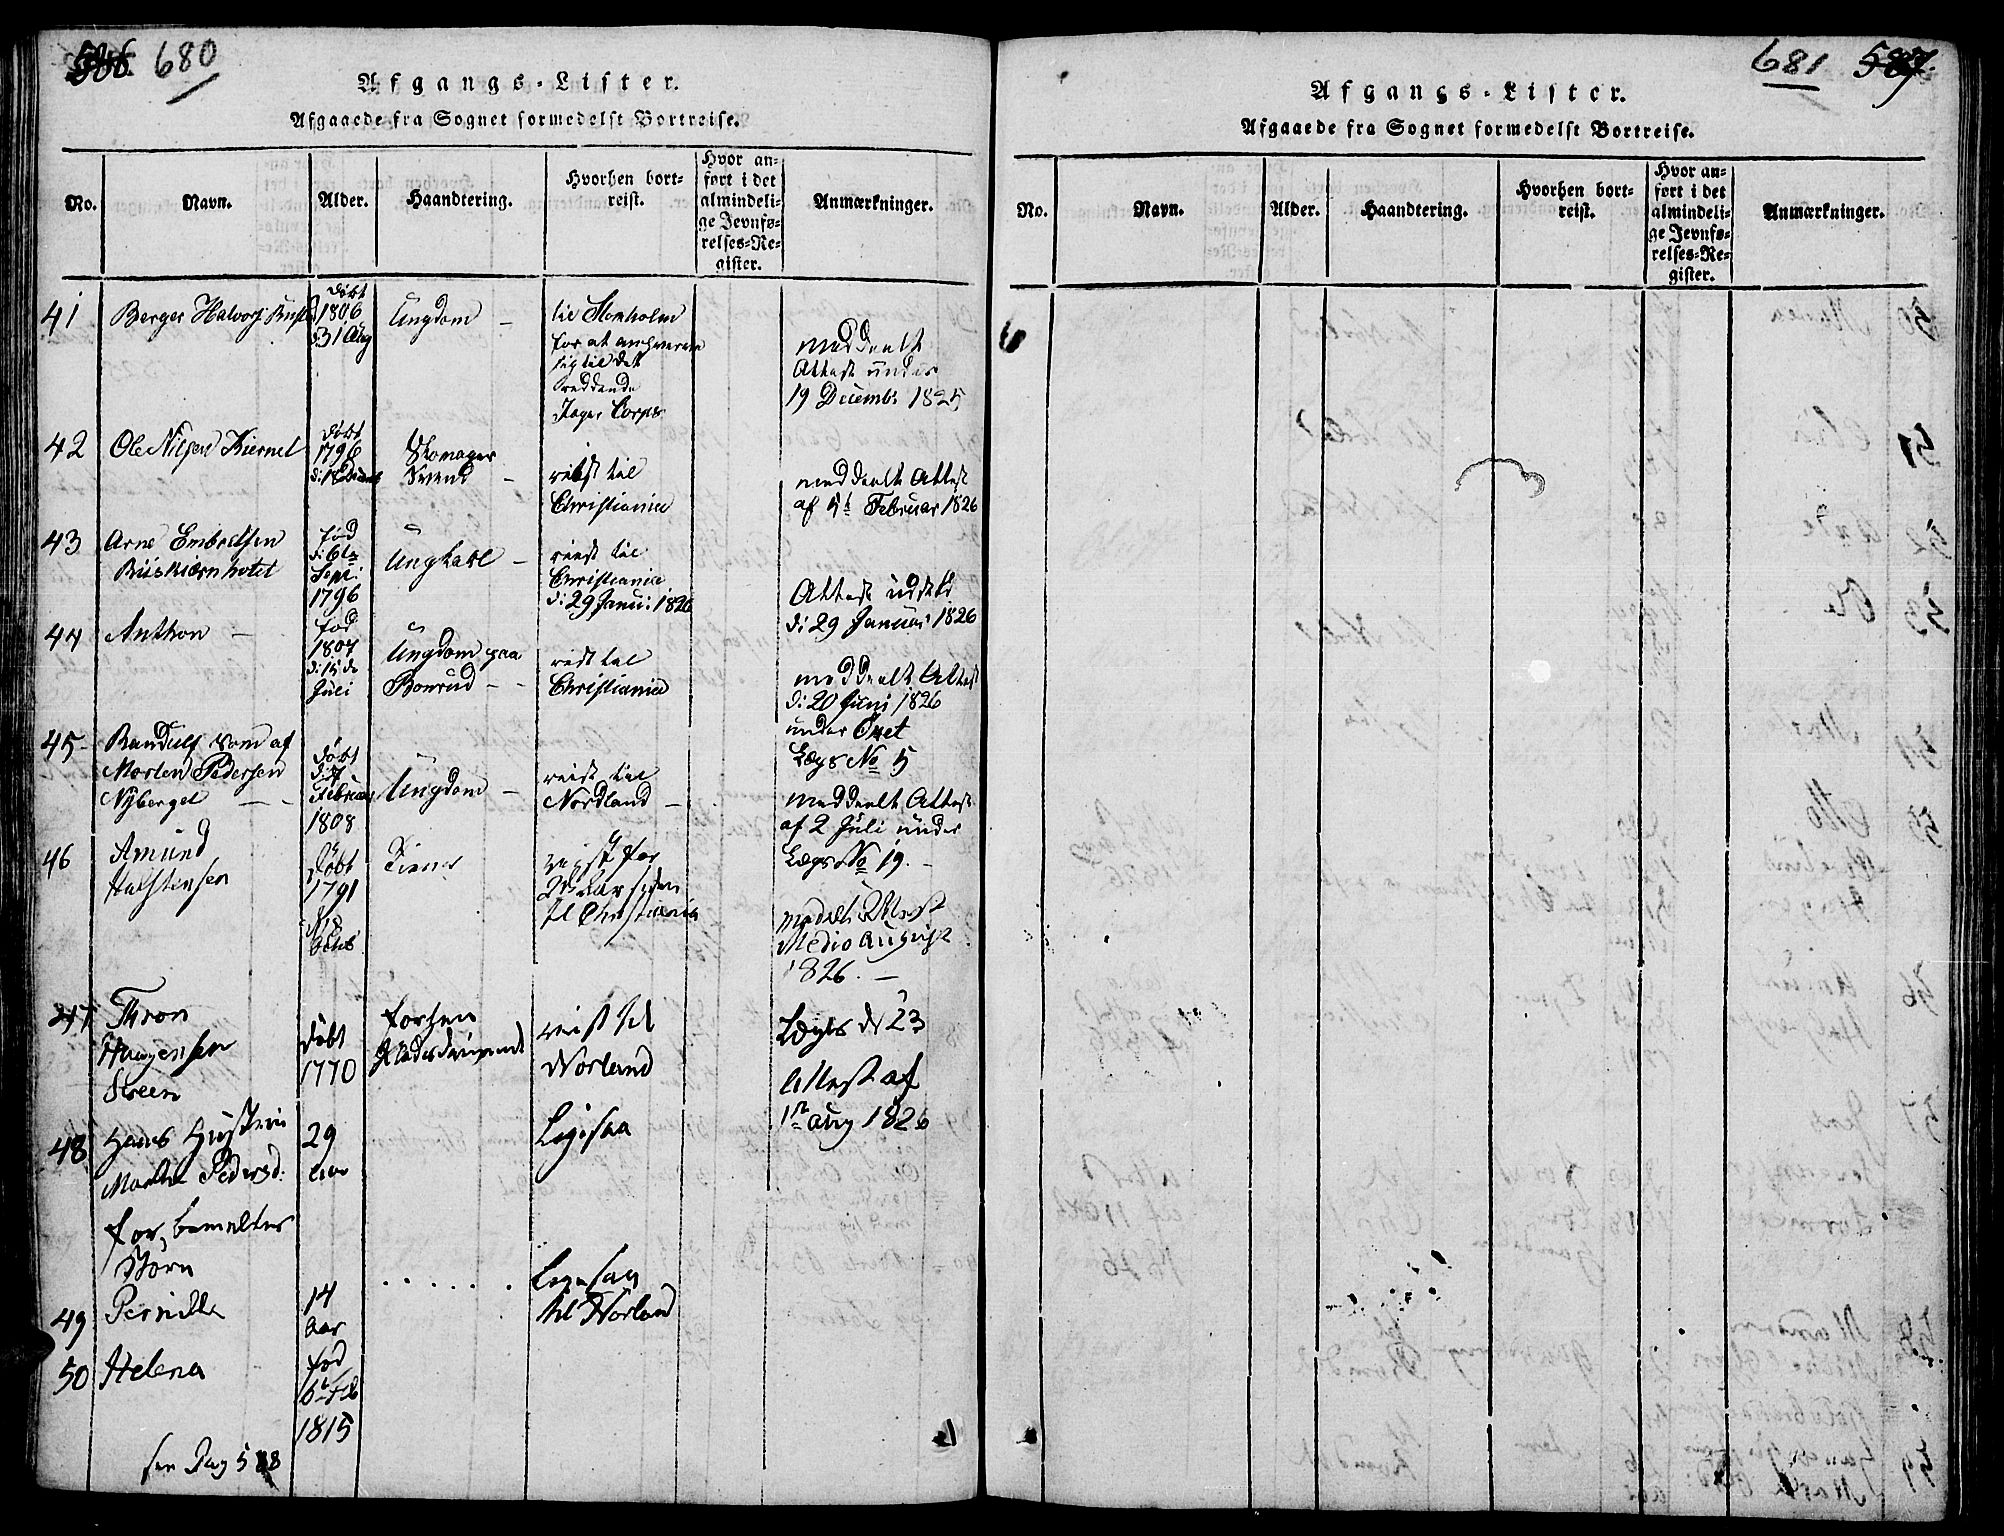 586 680
Afgangs-Lister.
Afgaaede fra Sognet formedelst Bortreise.
No. Navn. Alder. Haandtering. Hvorhen bort-
reist. Hvor an-
ført i det
almindeli-
ge Jevnfø-
relses-Re-
gister. Anmærkninger.
41 Berger Halvors:
Døbt
1806
d: 31 Aug
Ungdom -
til Stokholm
for at
sig til det
ridende
Jæger Corps
meddeelt
Attest under
19 Decemb: 1825
42 Ole Nilsen Kiernet
Døbt
1796
Skomager
Svend -
reist til
Christiania
meddeelt Attest
af 5te Februar 1826
43 Arne Embretsen
fød
d: 6te
Sept:
1796
Ungkarl -
reist til
Christiania
d: 29 Janu: 1826
Attest udst:
d: 29 Januar 1826
44 Anthon -
fød
1807
d: 15de
Juli
Ungdom paa
Bonrud - -
reist til
Christiania
meddeelt Attest
d: 20 Juni 1826
under
Lægs No 5
45- Randulf Søn af
Morten Pedersen
Nyberget - -
Døbt
d: 7
Februar
1808
Ungdom -
reist til
Nordland -
meddeelt Attest
af 2 Juli under
Lægs No 19. -
46 Amund
Halstensen
Døbt
1791
Tiener
reist for
2de Aar siden
til Christiania
meddelt Attest
Medio August
1826. -
47 Thron
Haagensen
Steen
Døbt
1770
forhen
reist til
Norland
Lægs No 23
Attest af
1ste Aug 1826
48 Hans Hustrue
Marthe Pedersd:
29
Aar
Ligesaa
for, bemeldtes
Børn
49 Pernille
14
Aar
. . . . . .
Ligesaa
til Norland
50 Helena
fød
6te Feb
1815
see Pag 588
681 587.
Afgangs-Lister.
Afgaaede fra Sognet formedelst Bortreise.
No. Navn. Alder. Haandtering. Hvorhen bort-
reist. Hvor an-
ført i det
almindeli-
ge Jevnfø-
relses-Re-
gister. Anmærkninger.